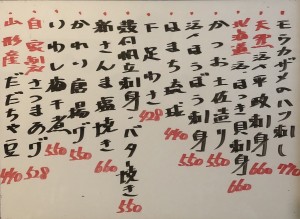 モウカザメのハツ刺し 770
天然活〆平政刺身 770
北海道活〆ほっき貝刺身 660
かつお土佐造り 660
活〆ほうぼう刺身 550
はまち琉球 550
下足わさ 428
殻付帆立刺身・バター焼き 550
新さんま塩焼き 660
かれい唐揚げ 550
いわし梅干煮 550
自家製さつまあげ 528
山形産だだちゃ豆 440